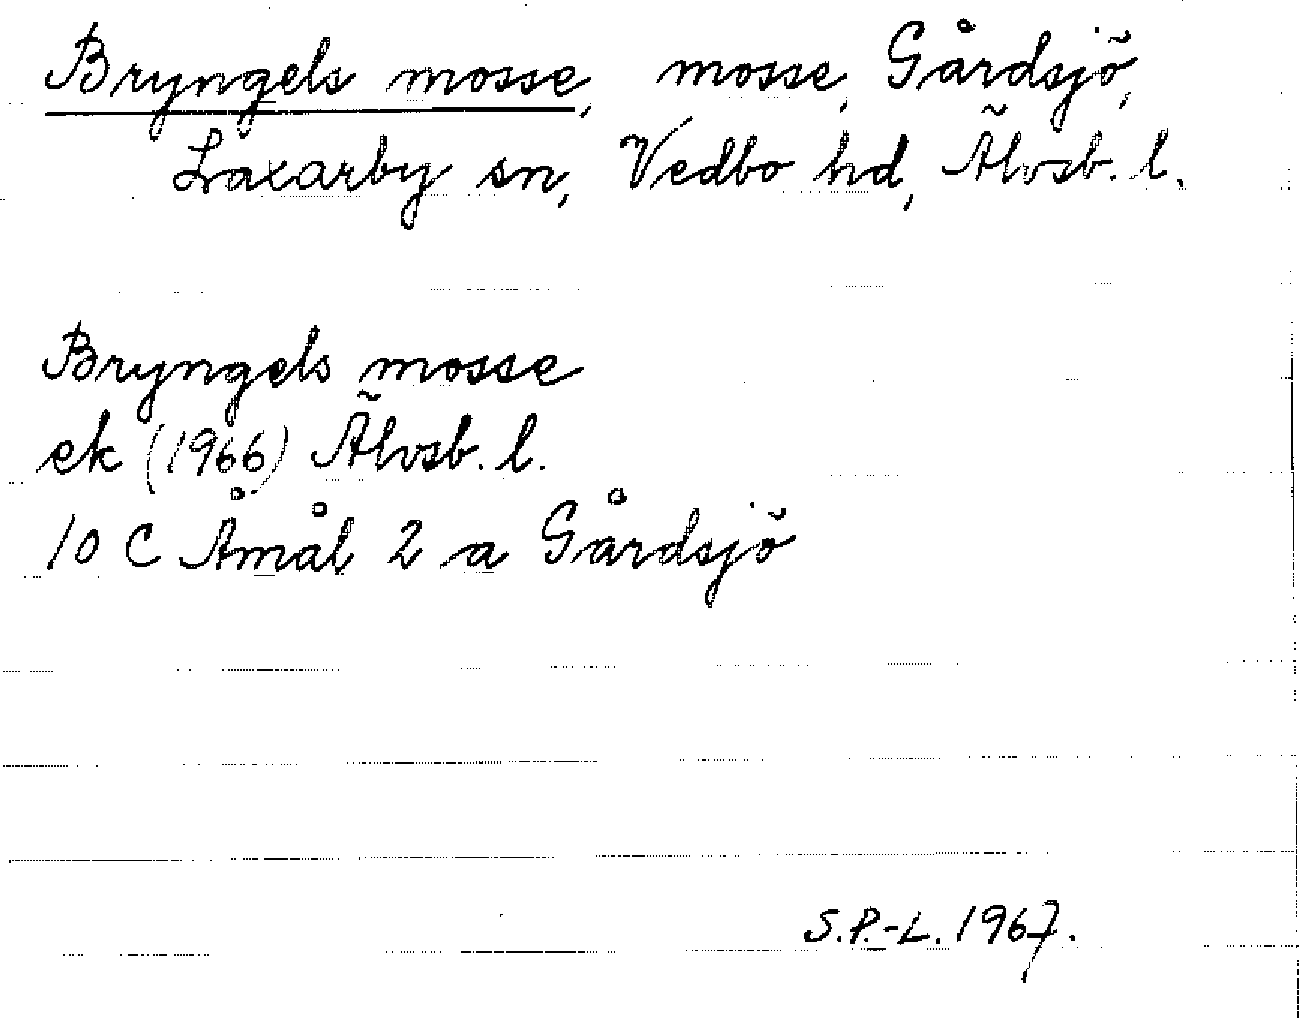 Bryngels mosse, mosse, Gårdsjö,
Laxarby sn, Vedbo hd, Älvsb. l.
Bryngels mosse
ek (1966) Älvsb. l.
10 C Åmål 2 a Gårdsjö
S.P.-L. 1967.